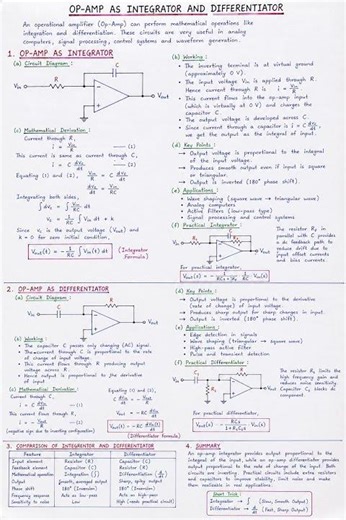 OP-AMP AS INTEGRATOR AND DIFFERENTIATOR
An operational amplifier (Op-Amp) can perform mathematical operations like
integration and differentiation. These circuits are very useful in analog
computers, signal processing, control systems and waveform generation.
1. OP-AMP AS INTEGRATOR
(a) Circuit Diagram :
C
R
Vin
Vout
(b) Working :
• The inverting terminal is at virtual ground
(approximately 0 V).
• The input voltage Vin is applied through R.
Hence current through R is i = Vin/R
• This current flows into the op-amp input
(which is virtually at 0 V) and charges the
capacitor C.
• The output voltage is developed across C.
• Since current through a capacitor is i = C dVo/dt,
we get the output as the integral of input.
(c) Mathematical Derivation :
Current through R,
i = Vin/R — (1)
This current is same as current through C,
i = C dVo/dt — (2)
Equating (1) and (2), Vin/R = C dVo/dt
dVo/dt = Vin/RC
Integrating both sides,
∫ dVo = ∫ Vin/RC dt
Vo = 1/RC ∫ Vin dt + k
Since Vo is the output voltage (Vout) and
k = 0 for zero initial condition,
Vout(t) = - 1/RC ∫ Vin(t) dt
(Integrator Formula)
(d) Key Points :
→ Output voltage is proportional to the integral
of the input voltage.
→ Produces smooth output even if input is square
or triangular.
→ Output is inverted (180° phase shift).
(e) Applications :
• Wave shaping (square wave → triangular wave)
• Analog computers
• Active filters (low-pass type)
• Signal processing and control systems
(f) Practical Integrator :
The resistor Rf in
parallel with C provides
a dc feedback path to
reduce drift due to
input offset currents
and bias currents.
For practical integrator,
2. OP-AMP AS DIFFERENTIATOR
(a) Circuit Diagram :
R
C
Vin
Vout
(b) Working :
• The capacitor C passes only changing (AC) signal.
• The current through C is proportional to the rate
of change of input voltage.
• This current flows through R producing output
voltage across it.
• Hence output is proportional to the derivative
of input.
(c) Mathematical Derivation :
Current through C,
i = C dVin/dt — (1)
This current flows through R,
(negative sign due to inverting configuration)
Equating (1) and (2),
Vout = -RC dVin/dt
Vout(t) = -RC dVin(t)/dt
(Differentiator formula)
(d) Key Points :
→ Output voltage is proportional to the derivative
(rate of change) of input voltage.
→ Produces sharp output for sharp changes in input.
→ Output is inverted (180° phase shift).
(e) Applications :
• Edge detection in signals
• Wave shaping (triangular → square)
• High-pass active filter
• Pulse and transient detection
(f) Practical Differentiator :
high frequency gain and
reduces noise sensitivity.
component.
For practical differentiator,
3. COMPARISON OF INTEGRATOR AND DIFFERENTIATOR
Feature Integrator Differentiator
Input element Resistor (R) Capacitor (C)
Feedback element Capacitor (C) Resistor (R)
Mathematical operation Integration (∫) Differentiation (d/dt)
Output Smooth, averaged output Sharp, spiky output
Phase shift 180° (Inversion) 180° (Inversion)
Frequency response Acts as low-pass Acts as high-pass
Sensitivity to noise Low High (needs practical circuit)
4. SUMMARY
An op-amp integrator provides output proportional to the
integral of the input, while an op-amp differentiator provides
output proportional to the rate of change of the input. Both
circuits are inverting. Practical circuits include extra resistors
and capacitors to improve stability, limit noise and make
them realizable in real applications.
Short Trick :
Integrator → ∫ (Slow, Smooth Output)
Differentiator → d/dt (Fast, Sharp Output)